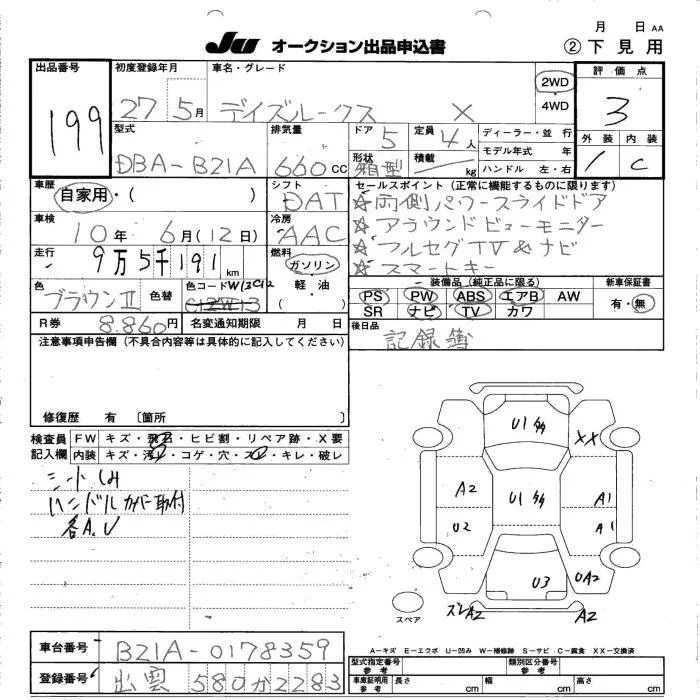 月 日 AA
JU オークション出品申込書
② 下見用
出品番号 199
初度登録年月 27 5月
車名・グレード デイズルークス X
2WD
4WD
評価点 3
外装 内装
1 C
型式 DBA-B21A
排気量 660 CC
ドア 5
形状 箱型
定員 4人
積載 kg
ディーラー・並行
モデル年式 年
ハンドル 左・右
車歴 自家用・( )
シフト DAT
車検 10年6月(12日)
冷房 AAC
走行 9万5千191km
燃料 ガソリン
軽油
・( )
色 ブラウンⅡ 色替
色コード W13C12
C12W13
セールスポイント(正常に機能するものに限ります)
☆両側パワースライドドア
☆アラウンドビューモニター
☆フルセグTV&ナビ
☆スマートキー
装備品(純正品に限る)
PS PW ABS エアB AW
SR ナビ TV カワ
新車保証書
有・無
R券 8.860円 名変通知期限 月 日
後日品 記録簿
注意事項申告欄(不具合内容等は具体的に記入してください)
修復歴 有 〔箇所 〕
検査員記入欄
FW キズ・飛石・ヒビ割・リペア跡・X要
内装 キズ・汚レ・コゲ・穴・スレ・キレ・破レ
シートしみ
ハンドルカバー取付
各A.U
U1
XX
A2
U1
A1
U2
A1
U3
UA2
スレA2
A2
スペア
A-キズ E-エクボ U-凹み W-補修跡 S-サビ C-腐食 XX-交換済
車台番号 B21A-0178359
登録番号 出雲 580か2283
型式指定番号 参考
類別区分番号 参考
車車証明用 参考 長さ cm 幅 cm 高さ cm